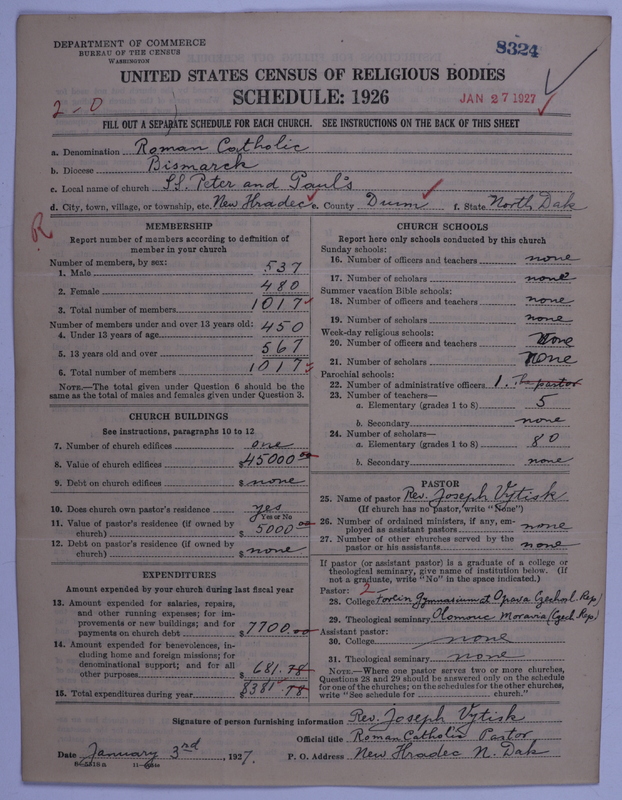 DEPARTMENT OF COMMERCE
BUREAU OF THE CENSUS
WASHINGTON
8324
UNITED STATES CENSUS OF RELIGIOUS BODIES
SCHEDULE: 1926
JAN 27 1927
2-0
FILL OUT A SEPARATE SCHEDULE FOR EACH CHURCH. SEE INSTRUCTIONS ON THE BACK OF THIS SHEET
a. Denomination Roman Catholic
b. Diocese Bismarck
c. Local name of church SS. Peter and Paul's
d. City, town, village, or township, etc. New Hradec e. County Dunn f. State North Dak
R
MEMBERSHIP
Report number of members according to definition of
member in your church
Number of members, by sex:
1. Male 537
2. Female 480
3. Total number of members 1017
Number of members under and over 13 years old:
4. Under 13 years of age 450
5. 13 years old and over 567
6. Total number of members 1017
NOTE.—The total given under Question 6 should be the
same as the total of males and females given under Question 3.
CHURCH BUILDINGS
See instructions, paragraphs 10 to 12
7. Number of church edifices one
8. Value of church edifices $45000.00
9. Debt on church edifices $none
10. Does church own pastor's residence yes
Yes or No
11. Value of pastor's residence (if owned by
church) $5000.00
12. Debt on pastor's residence (if owned by
church) $none
EXPENDITURES
Amount expended by your church during last fiscal year
13. Amount expended for salaries, repairs,
and other running expenses; for im-
provements or new buildings; and for
payments on church debt $7700.00
14. Amount expended for benevolences, in-
cluding home and foreign missions; for
denominational support; and for all
other purposes $681.78
15. Total expenditures during year $8381.78
CHURCH SCHOOLS
Report here only schools conducted by this church
Sunday schools:
16. Number of officers and teachers none
17. Number of scholars none
Summer vacation Bible schools:
18. Number of officers and teachers none
19. Number of scholars none
Week-day religious schools:
20. Number of officers and teachers None
21. Number of scholars None
Parochial schools:
22. Number of administrative officers 1. The pastor
23. Number of teachers—
a. Elementary (grades 1 to 8) 5
b. Secondary none
24. Number of scholars—
a. Elementary (grades 1 to 8) 80
b. Secondary none
PASTOR
25. Name of pastor Rev. Joseph Vytisk
(If church has no pastor, write "None")
26. Number of ordained ministers, if any, em-
ployed as assistant pastors none
27. Number of other churches served by the
pastor or his assistants none
If pastor (or assistant pastor) is a graduate of a college or
theological seminary, give name of institution below. (If
not a graduate, write "No" in the space indicated.)
Pastor: 2
28. College Gymnasium at Opava Czechosl. Rep)
29. Theological seminary Olomouc Moravia (Czech Rep)
Assistant pastor:
30. College none
31. Theological seminary none
NOTE.—Where one pastor serves two or more churches,
Questions 28 and 29 should be answered only on the schedule
for one of the churches; on the schedules for the other churches,
write "See schedule for church."
Signature of person furnishing information Rev. Joseph Vytisk
Official title Roman Catholic Pastor
Date January 3rd, 1927. P. O. Address New Hradec N. Dak